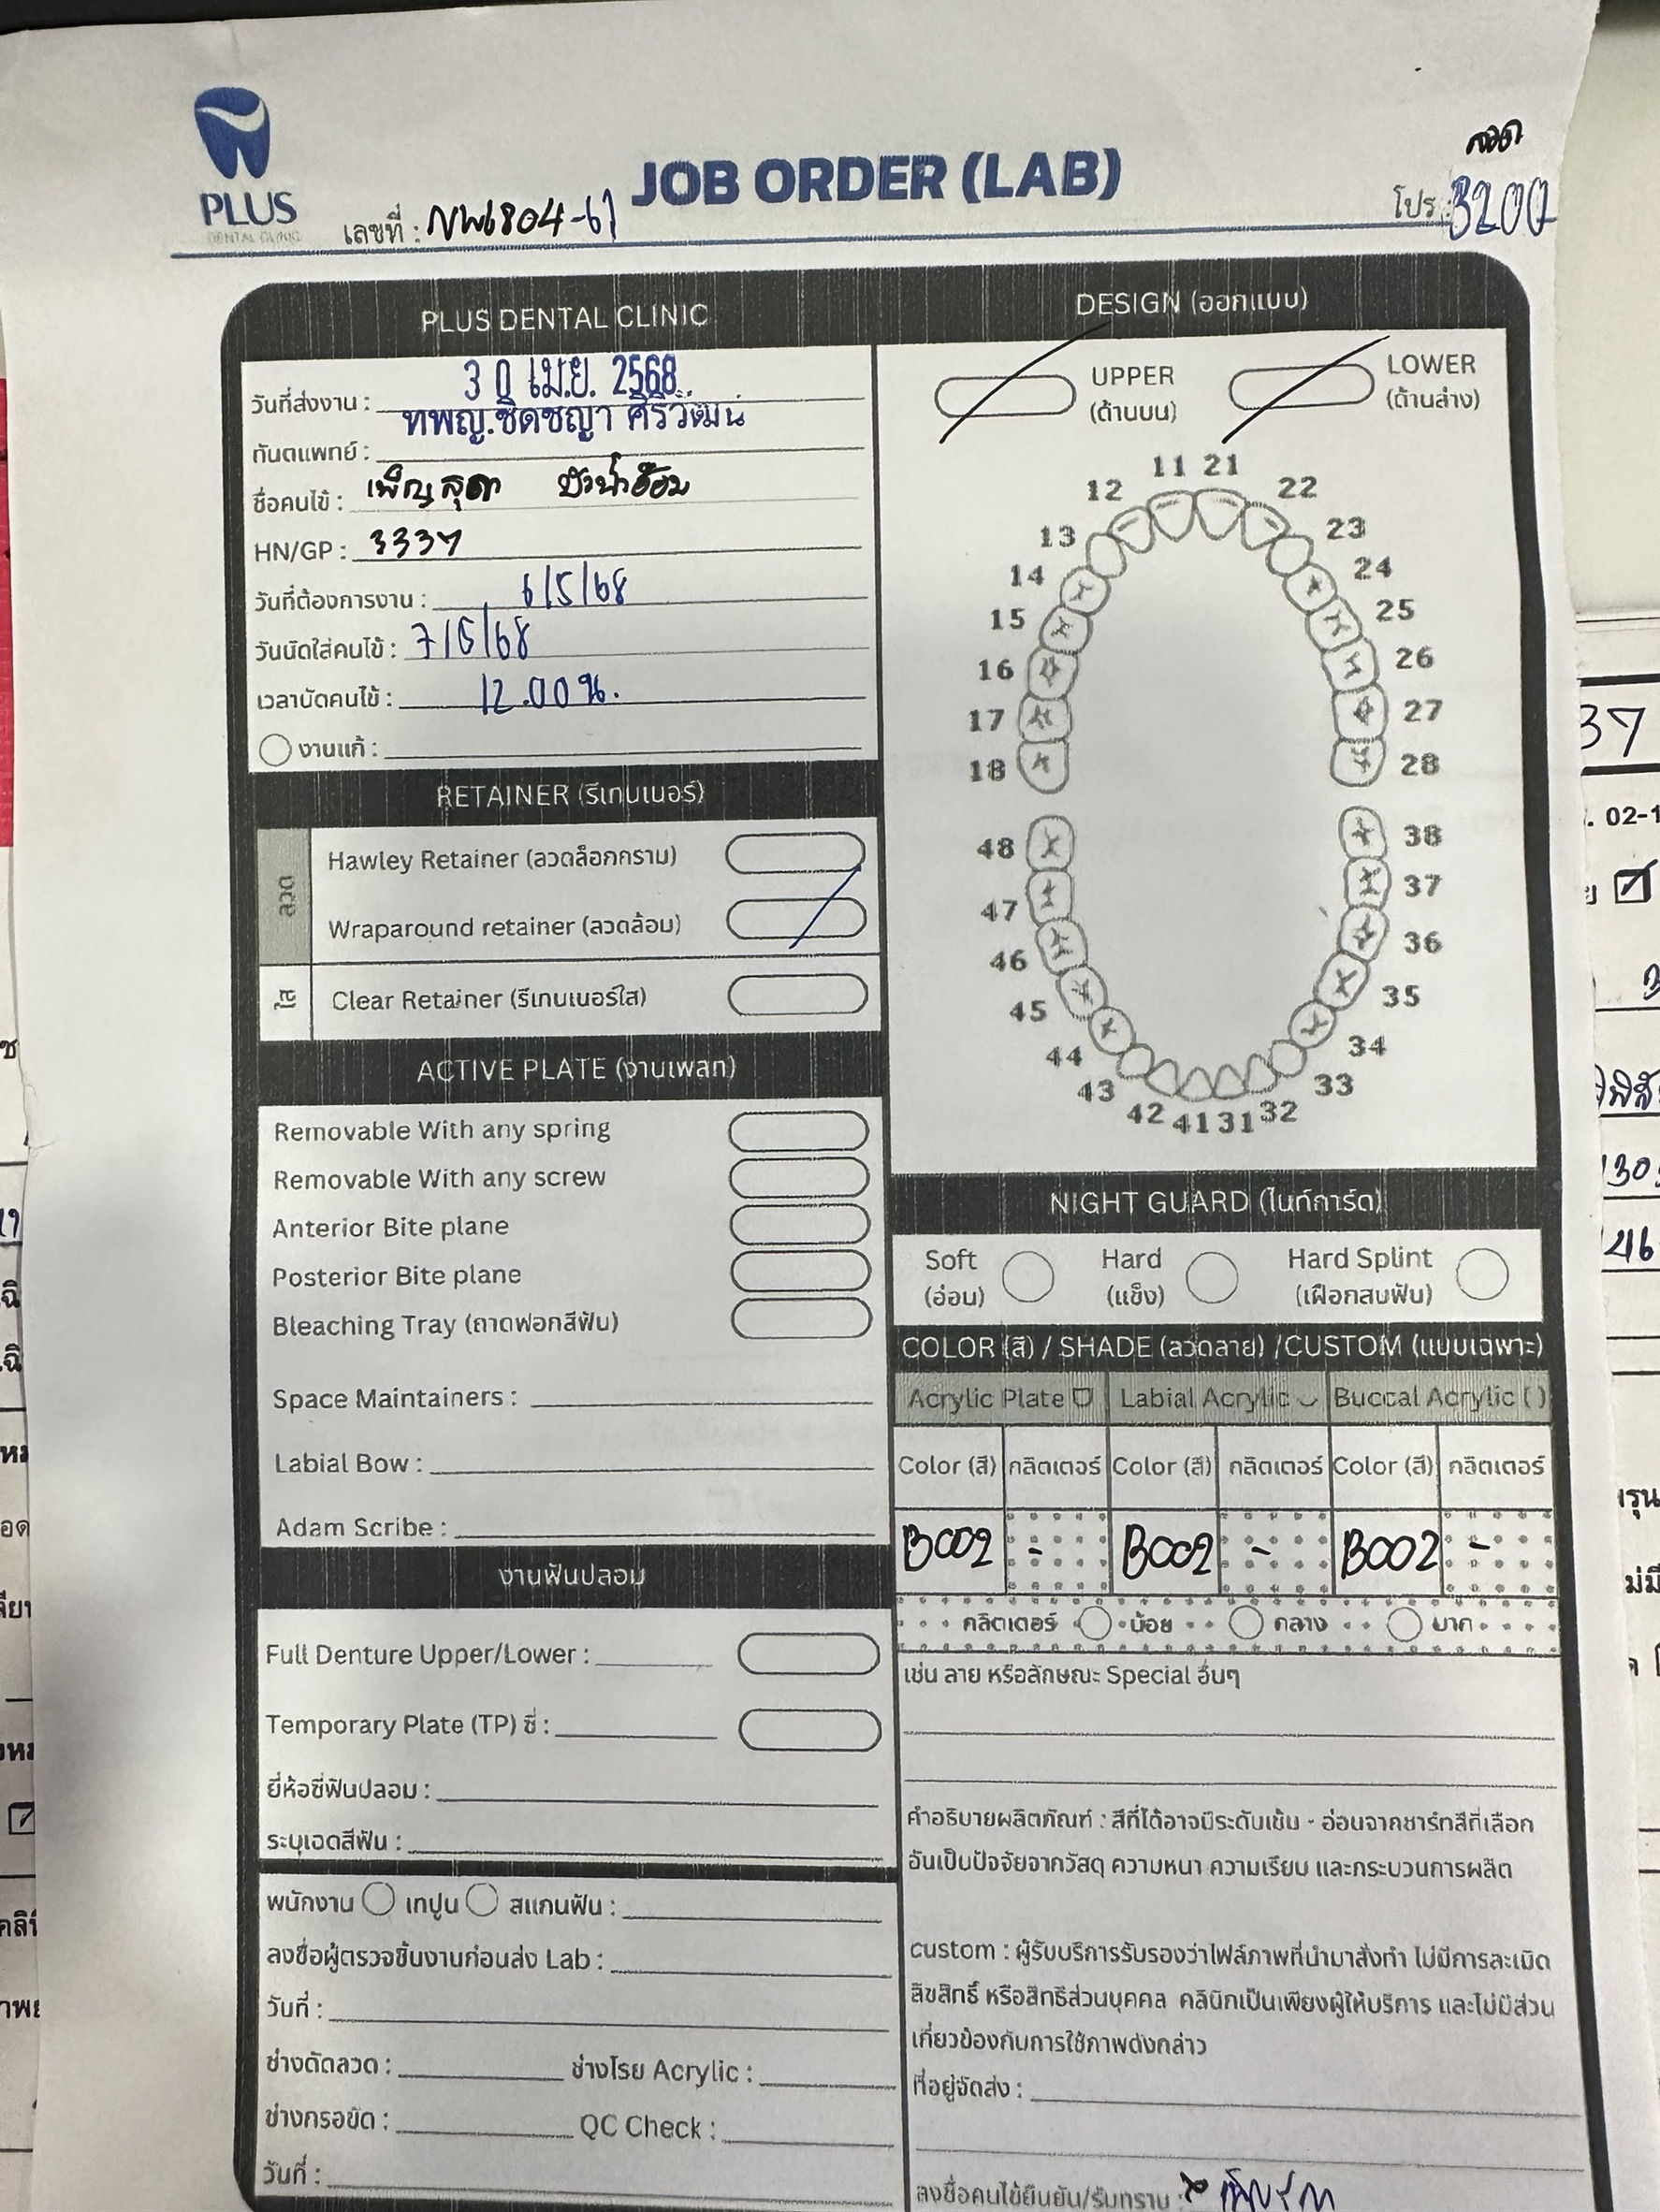 ลวด
JOB ORDER (LAB)
PLUS
DENTAL CLINIC
เลขที่ : NW6804-61
โปร : 3200
PLUS DENTAL CLINIC
วันที่ส่งงาน : 30 เม.ย. 2568
ทันตแพทย์ : ทพญ.ชิดชญา ศิริวัฒน์
ชื่อคนไข้ : เพ็ญสุดา บัวน้ำอ้อม
HN/GP : 3337
วันที่ต้องการงาน : 6/5/68
วันนัดใส่คนไข้ : 7/5/68
เวลานัดคนไข้ : 12.00 น.
งานแก้ :
RETAINER (รีเทนเนอร์)
ลวด
Hawley Retainer (ลวดล็อกคราม)
Wraparound retainer (ลวดล้อม)
ใส
Clear Retainer (รีเทนเนอร์ใส)
ACTIVE PLATE (งานเพลท)
Removable With any spring
Removable With any screw
Anterior Bite plane
Posterior Bite plane
Bleaching Tray (ถาดฟอกสีฟัน)
Space Maintainers :
Labial Bow :
Adam Scribe :
งานฟันปลอม
Full Denture Upper/Lower :
Temporary Plate (TP) ซี่ :
ยี่ห้อซี่ฟันปลอม :
ระบุเฉดสีฟัน :
พนักงาน เทปูน สแกนฟัน :
ลงชื่อผู้ตรวจชิ้นงานก่อนส่ง Lab :
วันที่ :
ช่างดัดลวด : ช่างโรย Acrylic :
ช่างกรอขัด : QC Check :
วันที่ :
DESIGN (ออกแบบ)
UPPER
(ด้านบน)
LOWER
(ด้านล่าง)
11 21
12 22
13 23
14 24
15 25
16 26
17 27
18 28
48 38
47 37
46 36
45 35
44 34
43 33
42 41 31 32
NIGHT GUARD (ไนท์การ์ด)
Soft
(อ่อน)
Hard
(แข็ง)
Hard Splint
(เฝือกสบฟัน)
COLOR (สี) / SHADE (ลวดลาย) /CUSTOM (แบบเฉพาะ)
Acrylic Plate Labial Acrylic Buccal Acrylic ( )
Color (สี) กลิตเตอร์ Color (สี) กลิตเตอร์ Color (สี) กลิตเตอร์
B002 - B002 - B002 -
กลิตเตอร์ น้อย กลาง มาก
เช่น ลาย หรือลักษณะ Special อื่นๆ
คำอธิบายผลิตภัณฑ์ : สีที่ได้อาจมีระดับเข้ม - อ่อนจากชาร์ทสีที่เลือก
อันเป็นปัจจัยจากวัสดุ ความหนา ความเรียบ และกระบวนการผลิต
custom : ผู้รับบริการรับรองว่าไฟล์ภาพที่นำมาสั่งทำ ไม่มีการละเมิด
ลิขสิทธิ์ หรือสิทธิส่วนบุคคล คลินิกเป็นเพียงผู้ให้บริการ และไม่มีส่วน
เกี่ยวข้องกับการใช้ภาพดังกล่าว
ที่อยู่จัดส่ง :
ลงชื่อคนไข้ยืนยัน/รับทราบ :
37
. 02-1